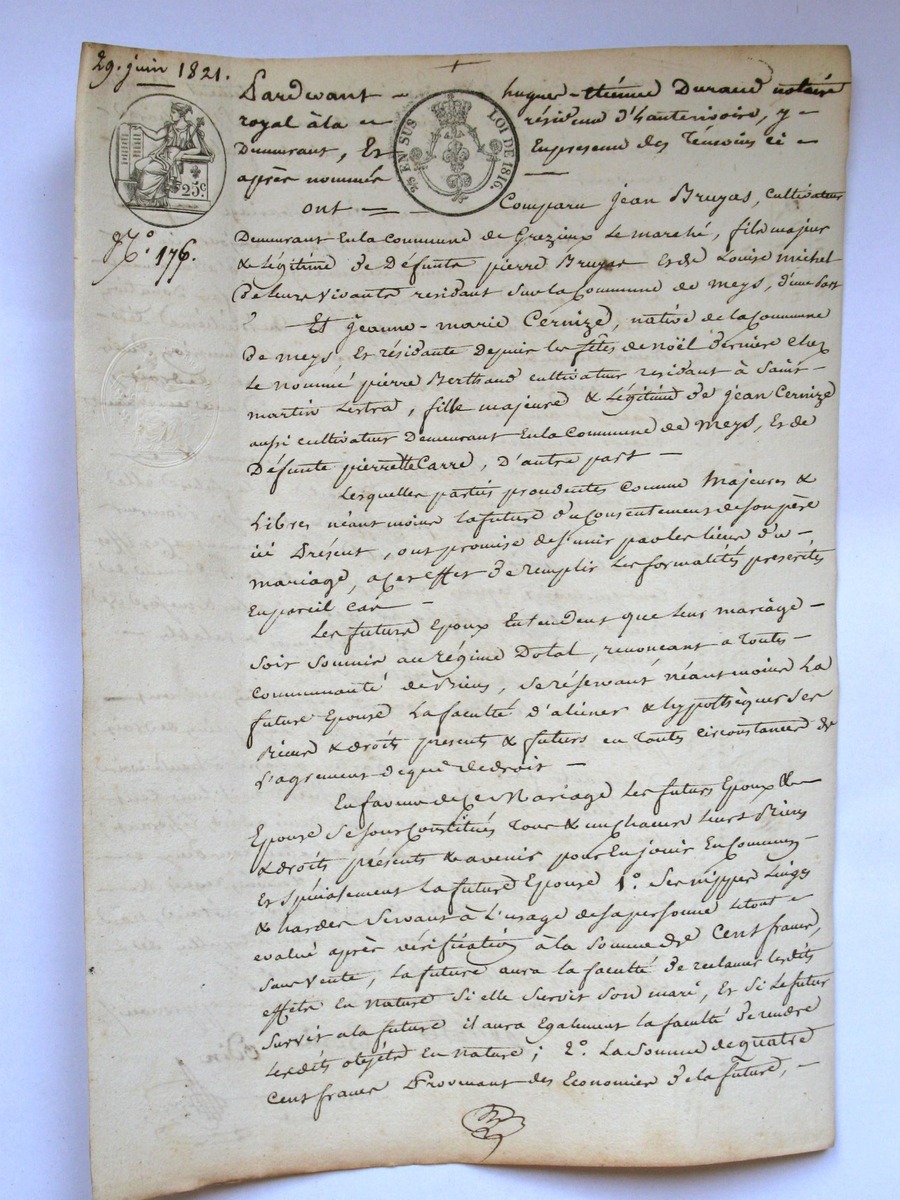 29. juin 1821.
Pardevant hugues-étienne Durand notaire
royal à la résidence d'hauterivoire, y
Demeurant, Et En presence des Témoins ci
après nommés
25 c.
⅖ EN SUS LOI DE 1816.
N.º 176.
ont Comparu Jean Bruyas, cultivateur
Demeurant En la Commune de Grezieux Le marché, fils majeur
& Légitime de Défunts pierre Bruyas et de Louise Michel
de leurs vivants residant sur la Commune de Meys, d'une part
Et jeanne-marie Cernize, native de la Commune
De meys, Et résidante Depuis les fêtes de noël dernière chez
Le nommé pierre Berthaud cultivateur residant à Saint
martin Lestra, fille majeure & Légitime de jean Cernize
aussi cultivateur Demeurant En la Commune de Meys, Et de
Défunte pierrette Carre, D'autre part
Lesquelles parties procedentes comme Majeures &
Libres néantmoins la future du Consentement de son père
ici Présent, ont promise de s'unir par les liens du
mariage, a cet effet de remplir les formalités prescrites
En pareil cas
Les futurs Epoux Entendent que leur mariâge
soit soumis au régime Dotal, renoncant a Toutes
communauté de Biens, se réservant néantmoins La
future Epouse La faculté d'aliéner & hypothèquer ses
Biens & droits presents & futurs en Toutes circonstances de
l'agrement de qui de droit
En faveur de Ce Mariage Les futurs Epoux &
Epouse se sont Constitués Tous & un chacun leurs Biens
& droits présents & avenir pour En jouir En Commun
Et spécialement la future Epouse 1.º Ses nippes Linges
& hardes Servant à L'usage de sa personne le tout
evalué après vérification à la Somme de Cent francs,
sans vente, La future aura la faculté de reclamer lesdits
effets En nature Si elle Survit Son mari, Et si Le futur
survit a la future il aura Egalement la faculté de rendre
Lesdits objets En nature; 2.º La Somme de quatre
Cent francs Provenant des Economies de la future,